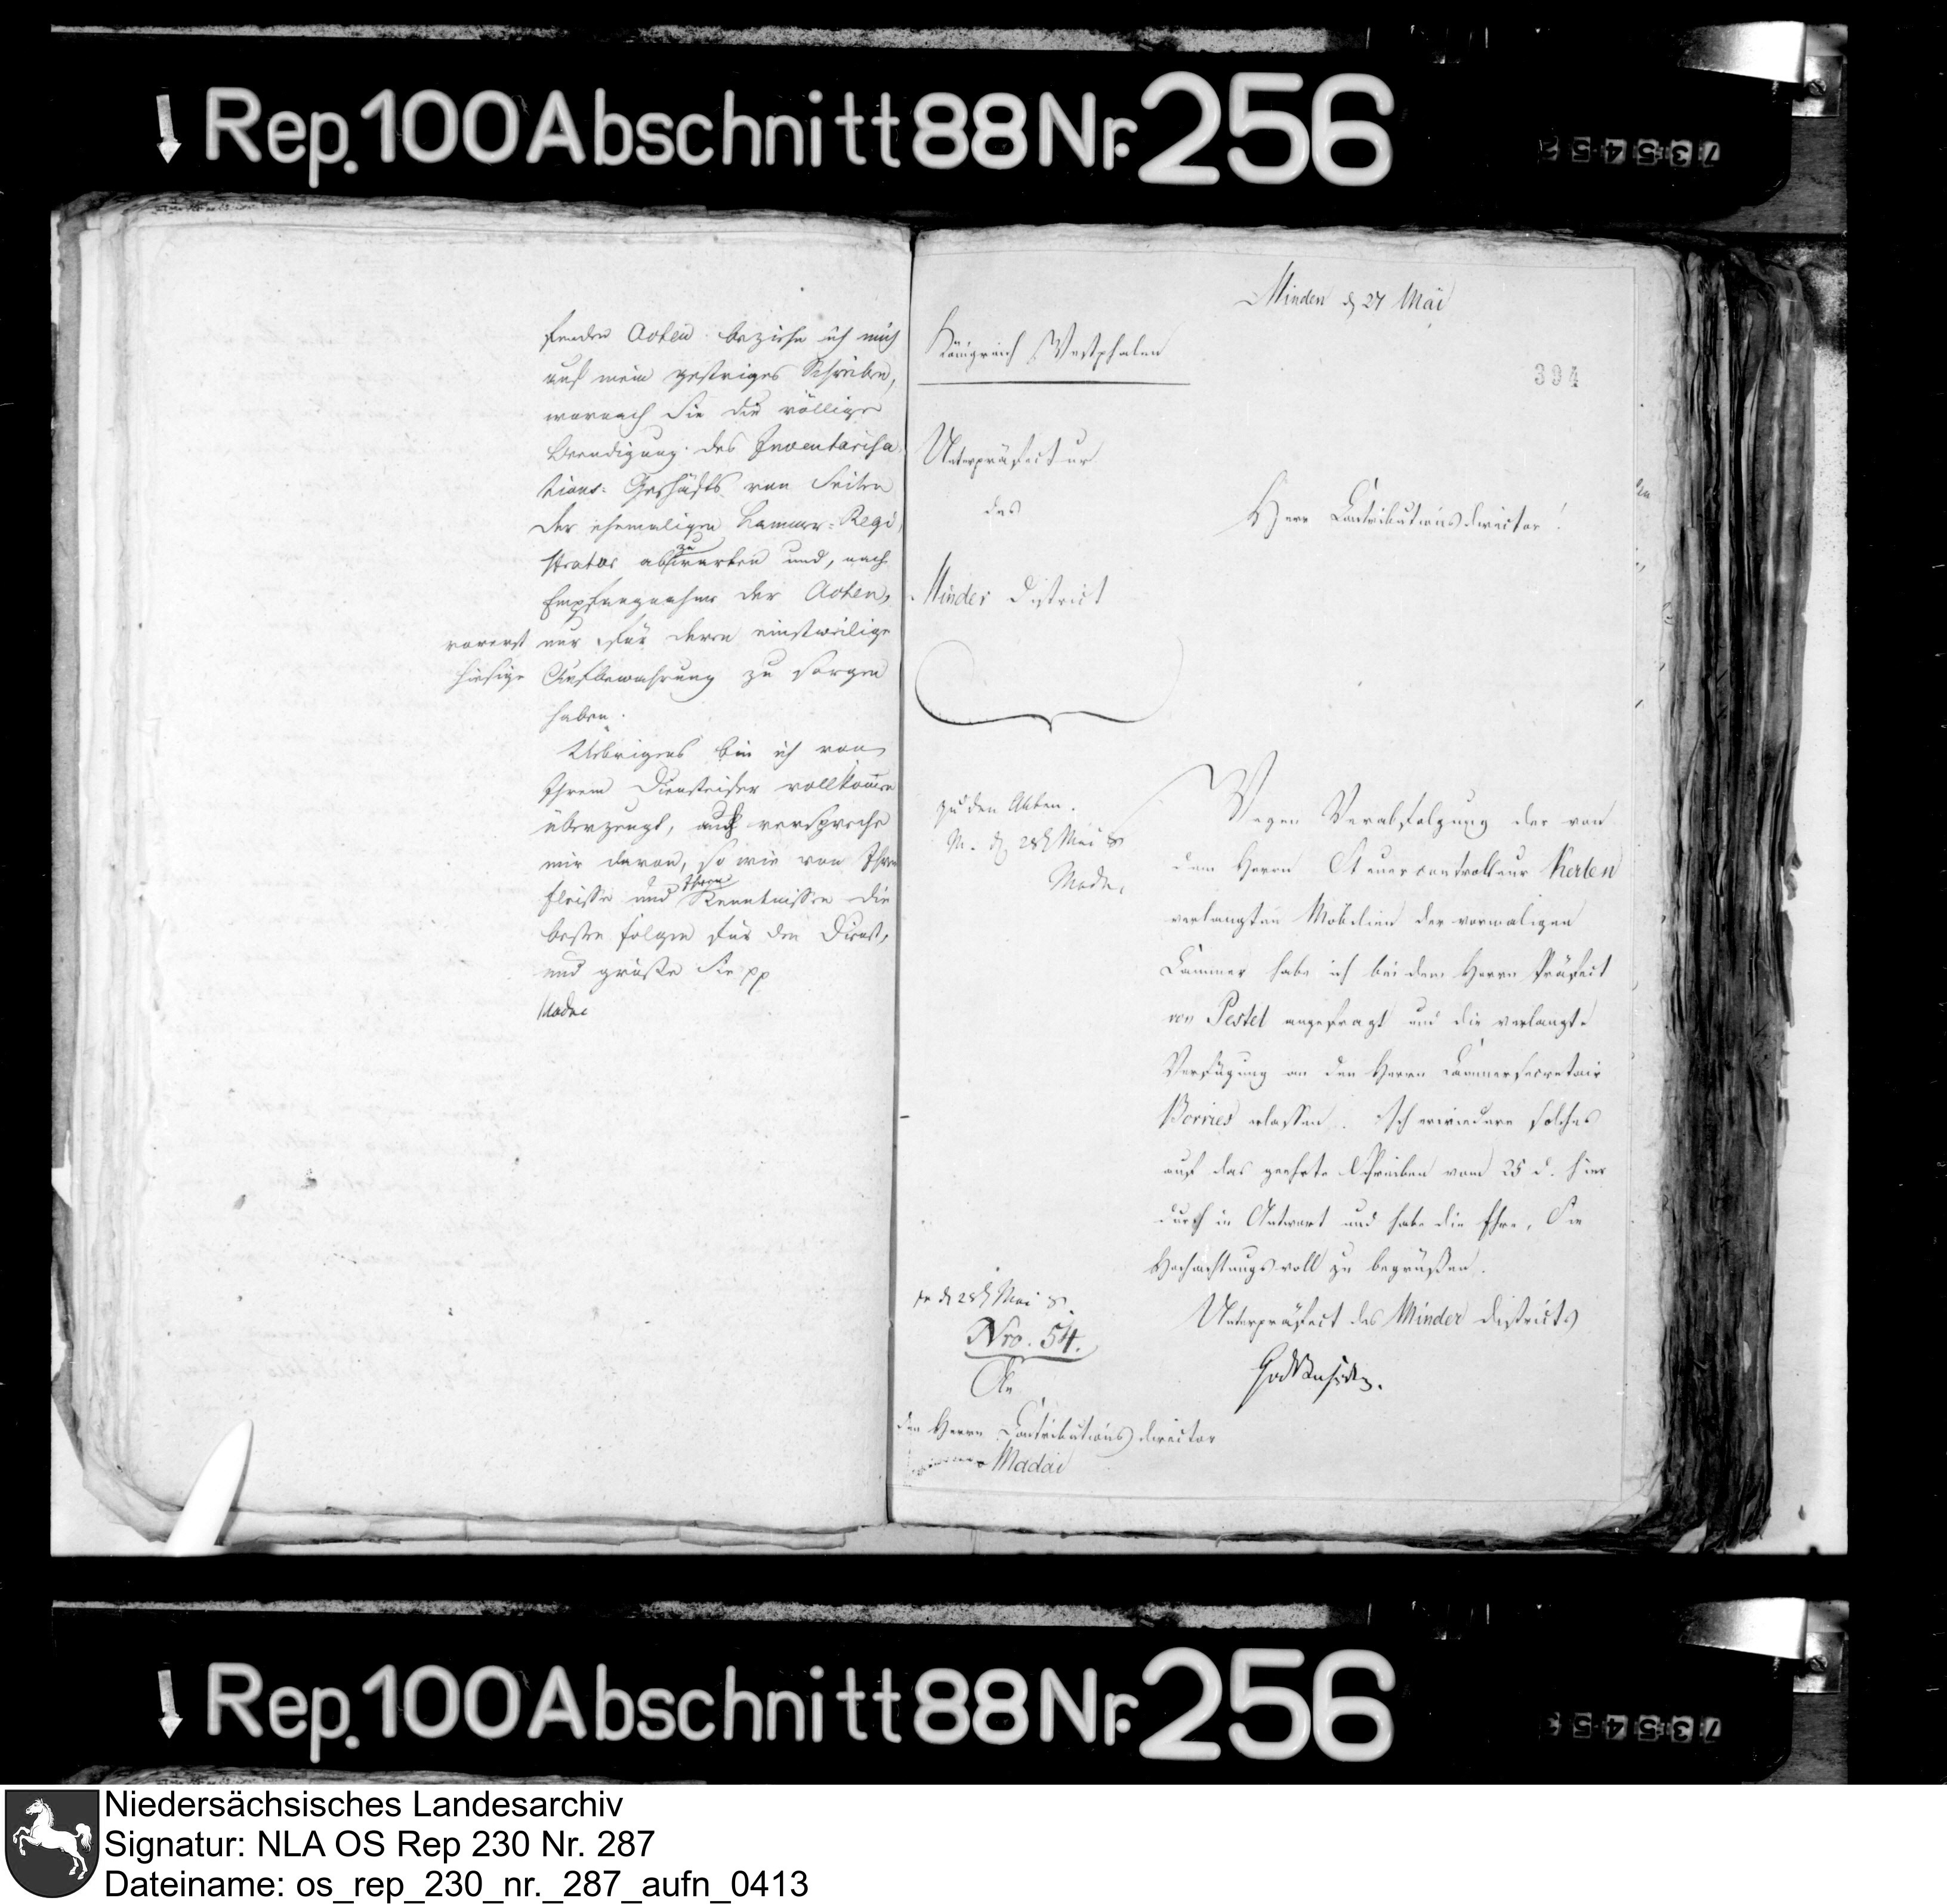 Rep. 100 Abschnitt 88 Nr. 256
fenden Acten beziehe ich mich
auf mein gestriges Schreiben,
wornach Sie die völlige
Beendigung des Inventarisa
tions-Geschäfts von Seiten
der ehemaligen Kammer-Regi
stratur abzuwarten und, nach
Empfangnahme der Acten,
vorerst nur für deren einstweilige
hiesige Aufbewahrung zu sorgen
haben.
Uebrigens bin ich von
Ihrem Diensteifer vollkommen
überzeugt, auch verspreche
mir davon, so wie von Ihrem
Fleisse und Ihren Kenntnissen die
besten Folgen für den Dienst,
und grüße Sie pp
Madai
Minden d 27 Mai
Königreich Westphalen
394
Unterpräfectur
des
Minder District
Herr Contributionsdirector!
zu den Akten.
M. d 28 Mai 8
Mada
Wegen Verabfolgung der von
dem Herrn Steuercontrolleur Kerten
verlangten Mobilien der vormaligen
Cammer habe ich bei dem Herrn Präfect
von Pestel angefragt und die verlangte
Verfügung an den Herrn Cammersecretair
Borries erlassen. Ich erwiedere solches
auf das geehrte Schreiben vom 25 d. hier
durch in Antwort und habe die Ehre, Sie
Hochachtungsvoll zu begrüßen.
Unterpräfect des Minder Districts
pr d 28 Mai 8.
Nro. 54.
An
den Herrn Contributionsdirector
Madai
Rep. 100 Abschnitt 88 Nr. 256
Niedersächsisches Landesarchiv
Signatur: NLA OS Rep 230 Nr. 287
Dateiname: os_rep_230_nr._287_aufn_0413